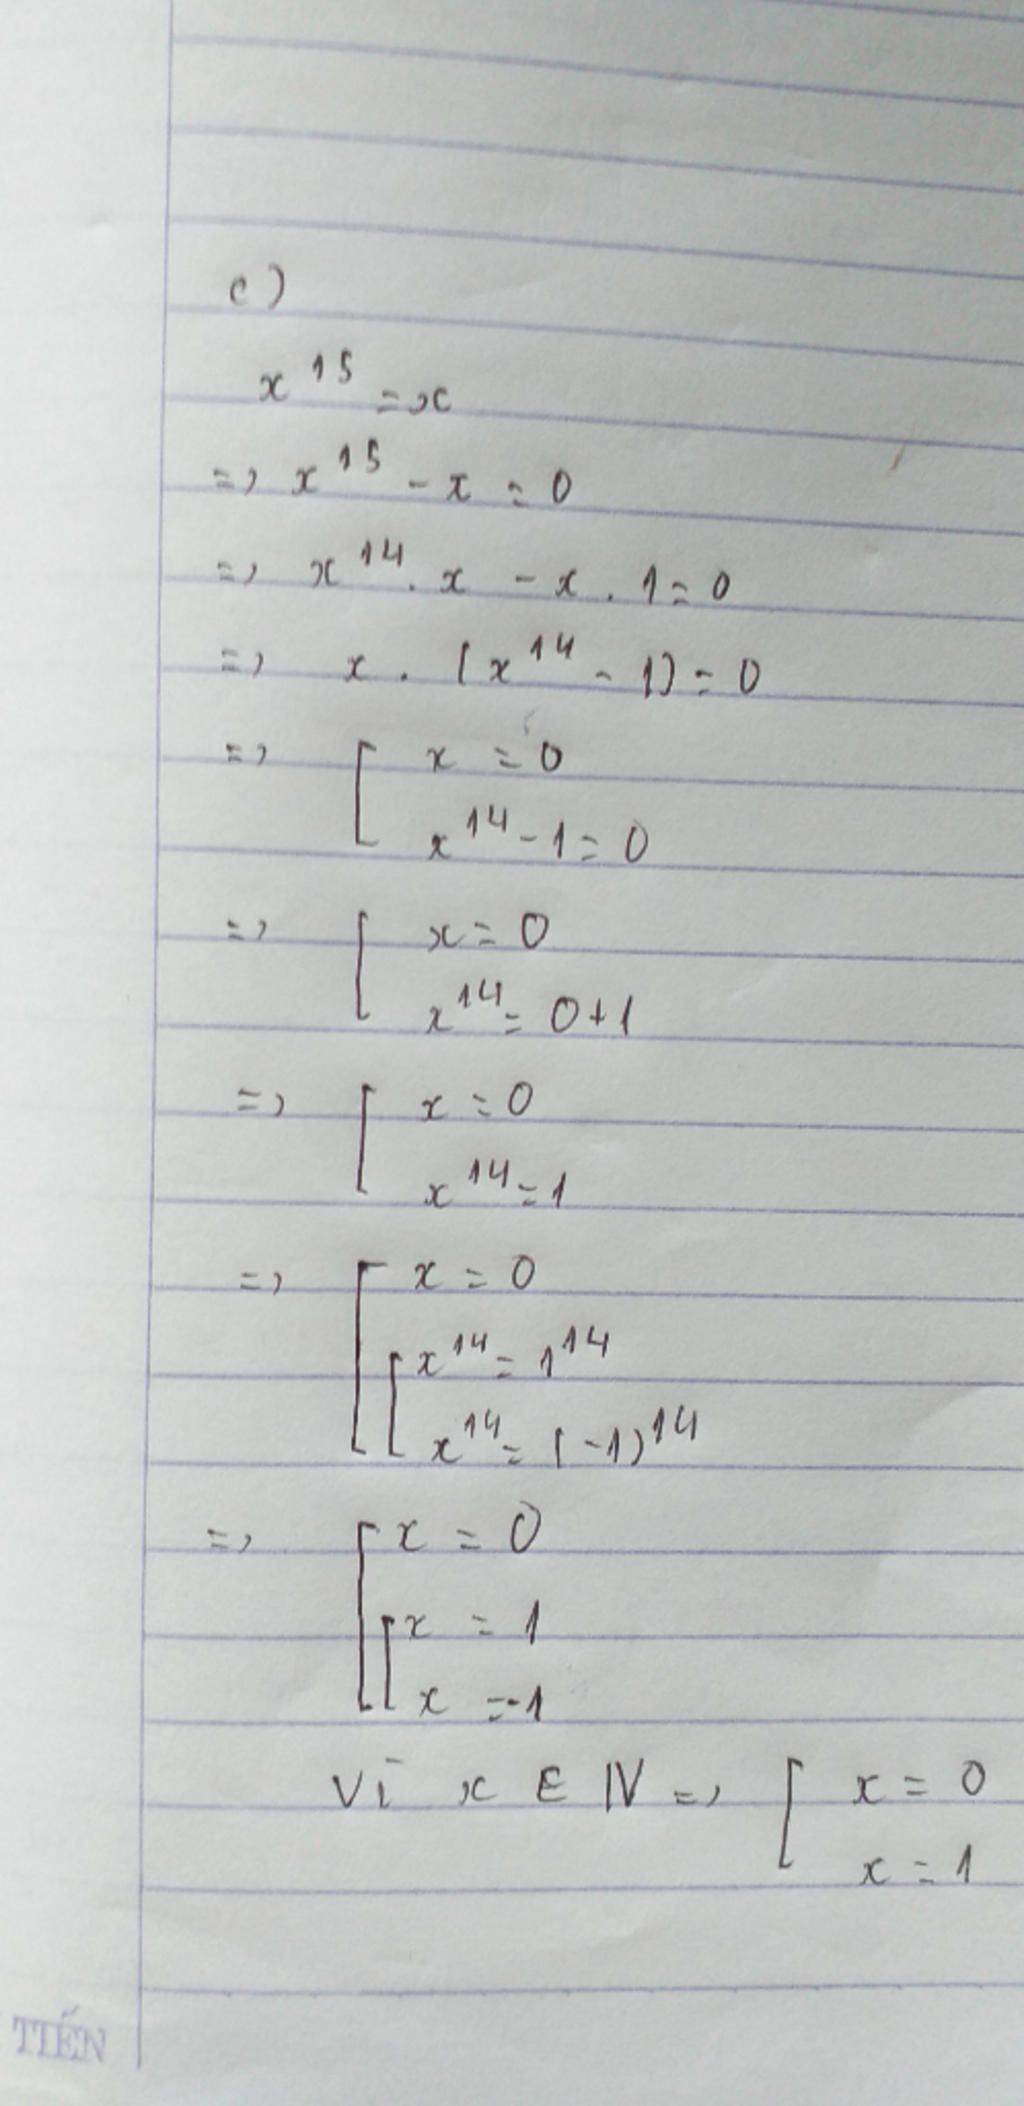 c)
x^15 = x
=> x^15 - x = 0
=> x^14 . x - x . 1 = 0
=> x . (x^14 - 1) = 0
=> [ x = 0
x^14 - 1 = 0
=> [ x = 0
x^14 = 0 + 1
=> [ x = 0
x^14 = 1
=> [ x = 0
[ x^14 = 1^14
x^14 = (-1)^14
=> [ x = 0
[ x = 1
x = -1
Vì x ∈ ℕ => [ x = 0
x = 1
TIẾN